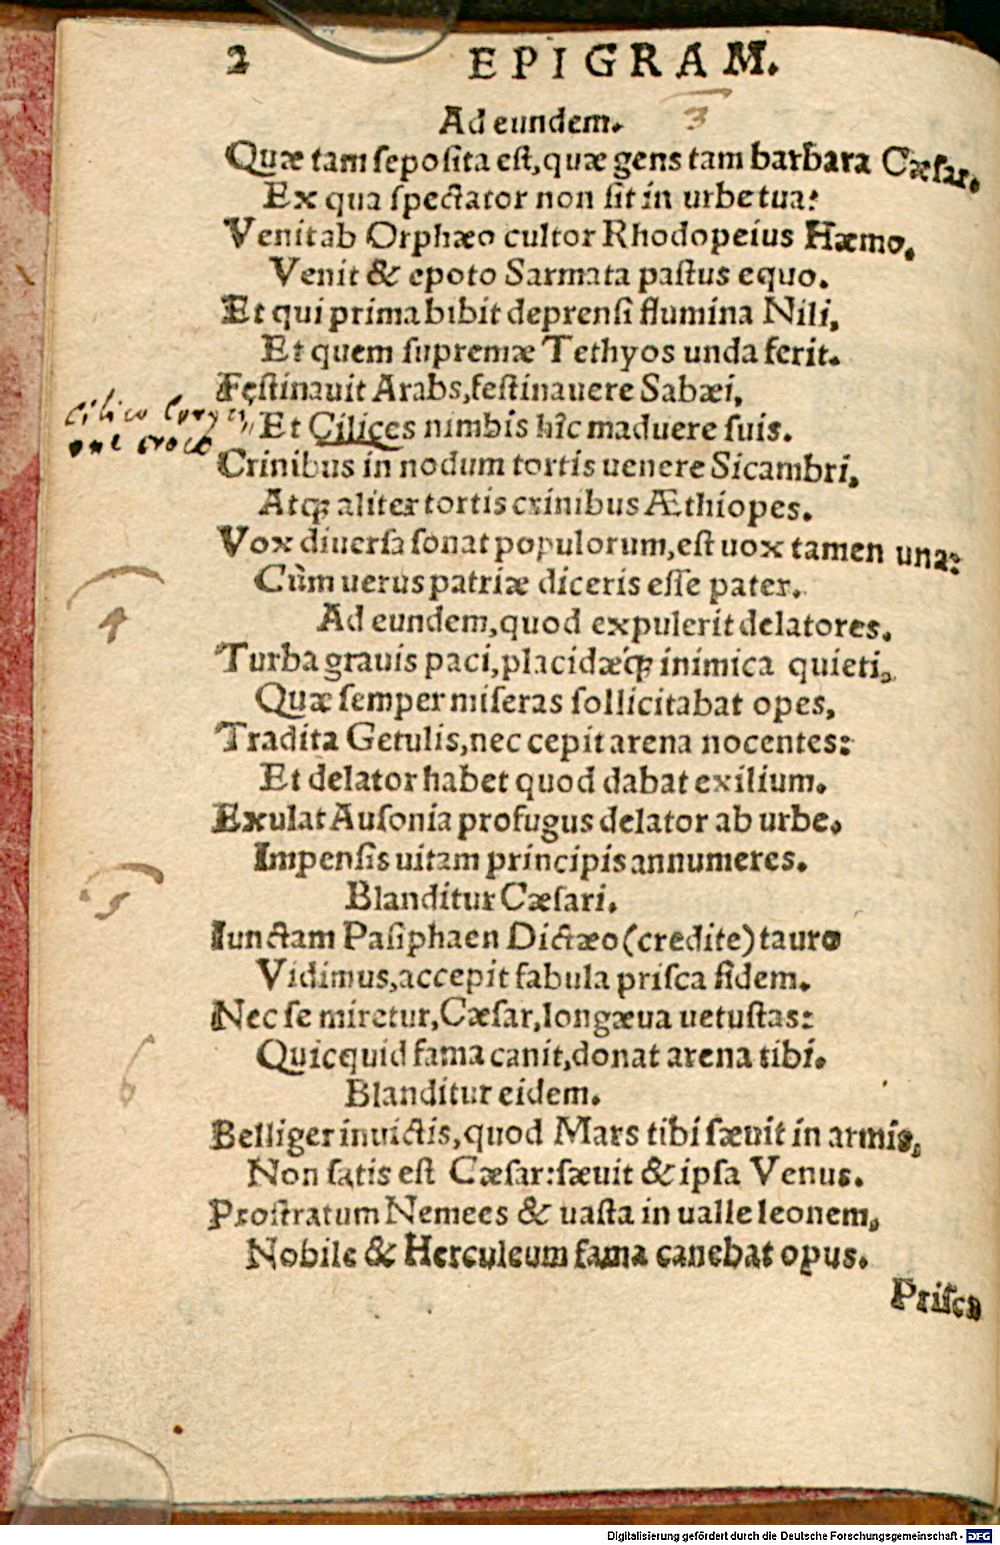 2 EPIGRAM.
Ad eundem. 3
Quæ tam seposita est, quæ gens tam barbara Cæsar.
Ex qua spectator non sit in urbe tua:
Venit ab Orphæo cultor Rhodopeius Hæmo,
Venit & epoto Sarmata pastus equo.
Et qui prima bibit deprensi flumina Nili,
Et quem supremæ Tethyos unda ferit.
Festinauit Arabs, festinauere Sabæi,
Cilico
Et Cilices nimbis hîc maduere suis.
croco
Crinibus in nodum tortis uenere Sicambri,
Atq; aliter tortis crinibus Æthiopes.
Vox diuersa sonat populorum, est uox tamen una:
Cùm uerus patriæ diceris esse pater.
4
Ad eundem, quod expulerit delatores.
Turba grauis paci, placidæq́; inimica quieti,
Quæ semper miseras sollicitabat opes,
Tradita Getulis, nec cepit arena nocentes:
Et delator habet quod dabat exilium.
Exulat Ausonia profugus delator ab urbe,
Impensis uitam principis annumeres.
5
Blanditur Cæsari.
Iunctam Pasiphaen Dictæo (credite) tauro
Vidimus, accepit fabula prisca fidem.
Nec se miretur, Cæsar, longæua uetustas:
Quicquid fama canit, donat arena tibi.
6
Blanditur eidem.
Belliger inuictis, quod Mars tibi sæuit in armis,
Non satis est Cæsar: sæuit & ipsa Venus.
Prostratum Nemees & uasta in ualle leonem,
Nobile & Herculeum fama canebat opus.
Prisca
Digitalisierung gefördert durch die Deutsche Forschungsgemeinschaft - DFG